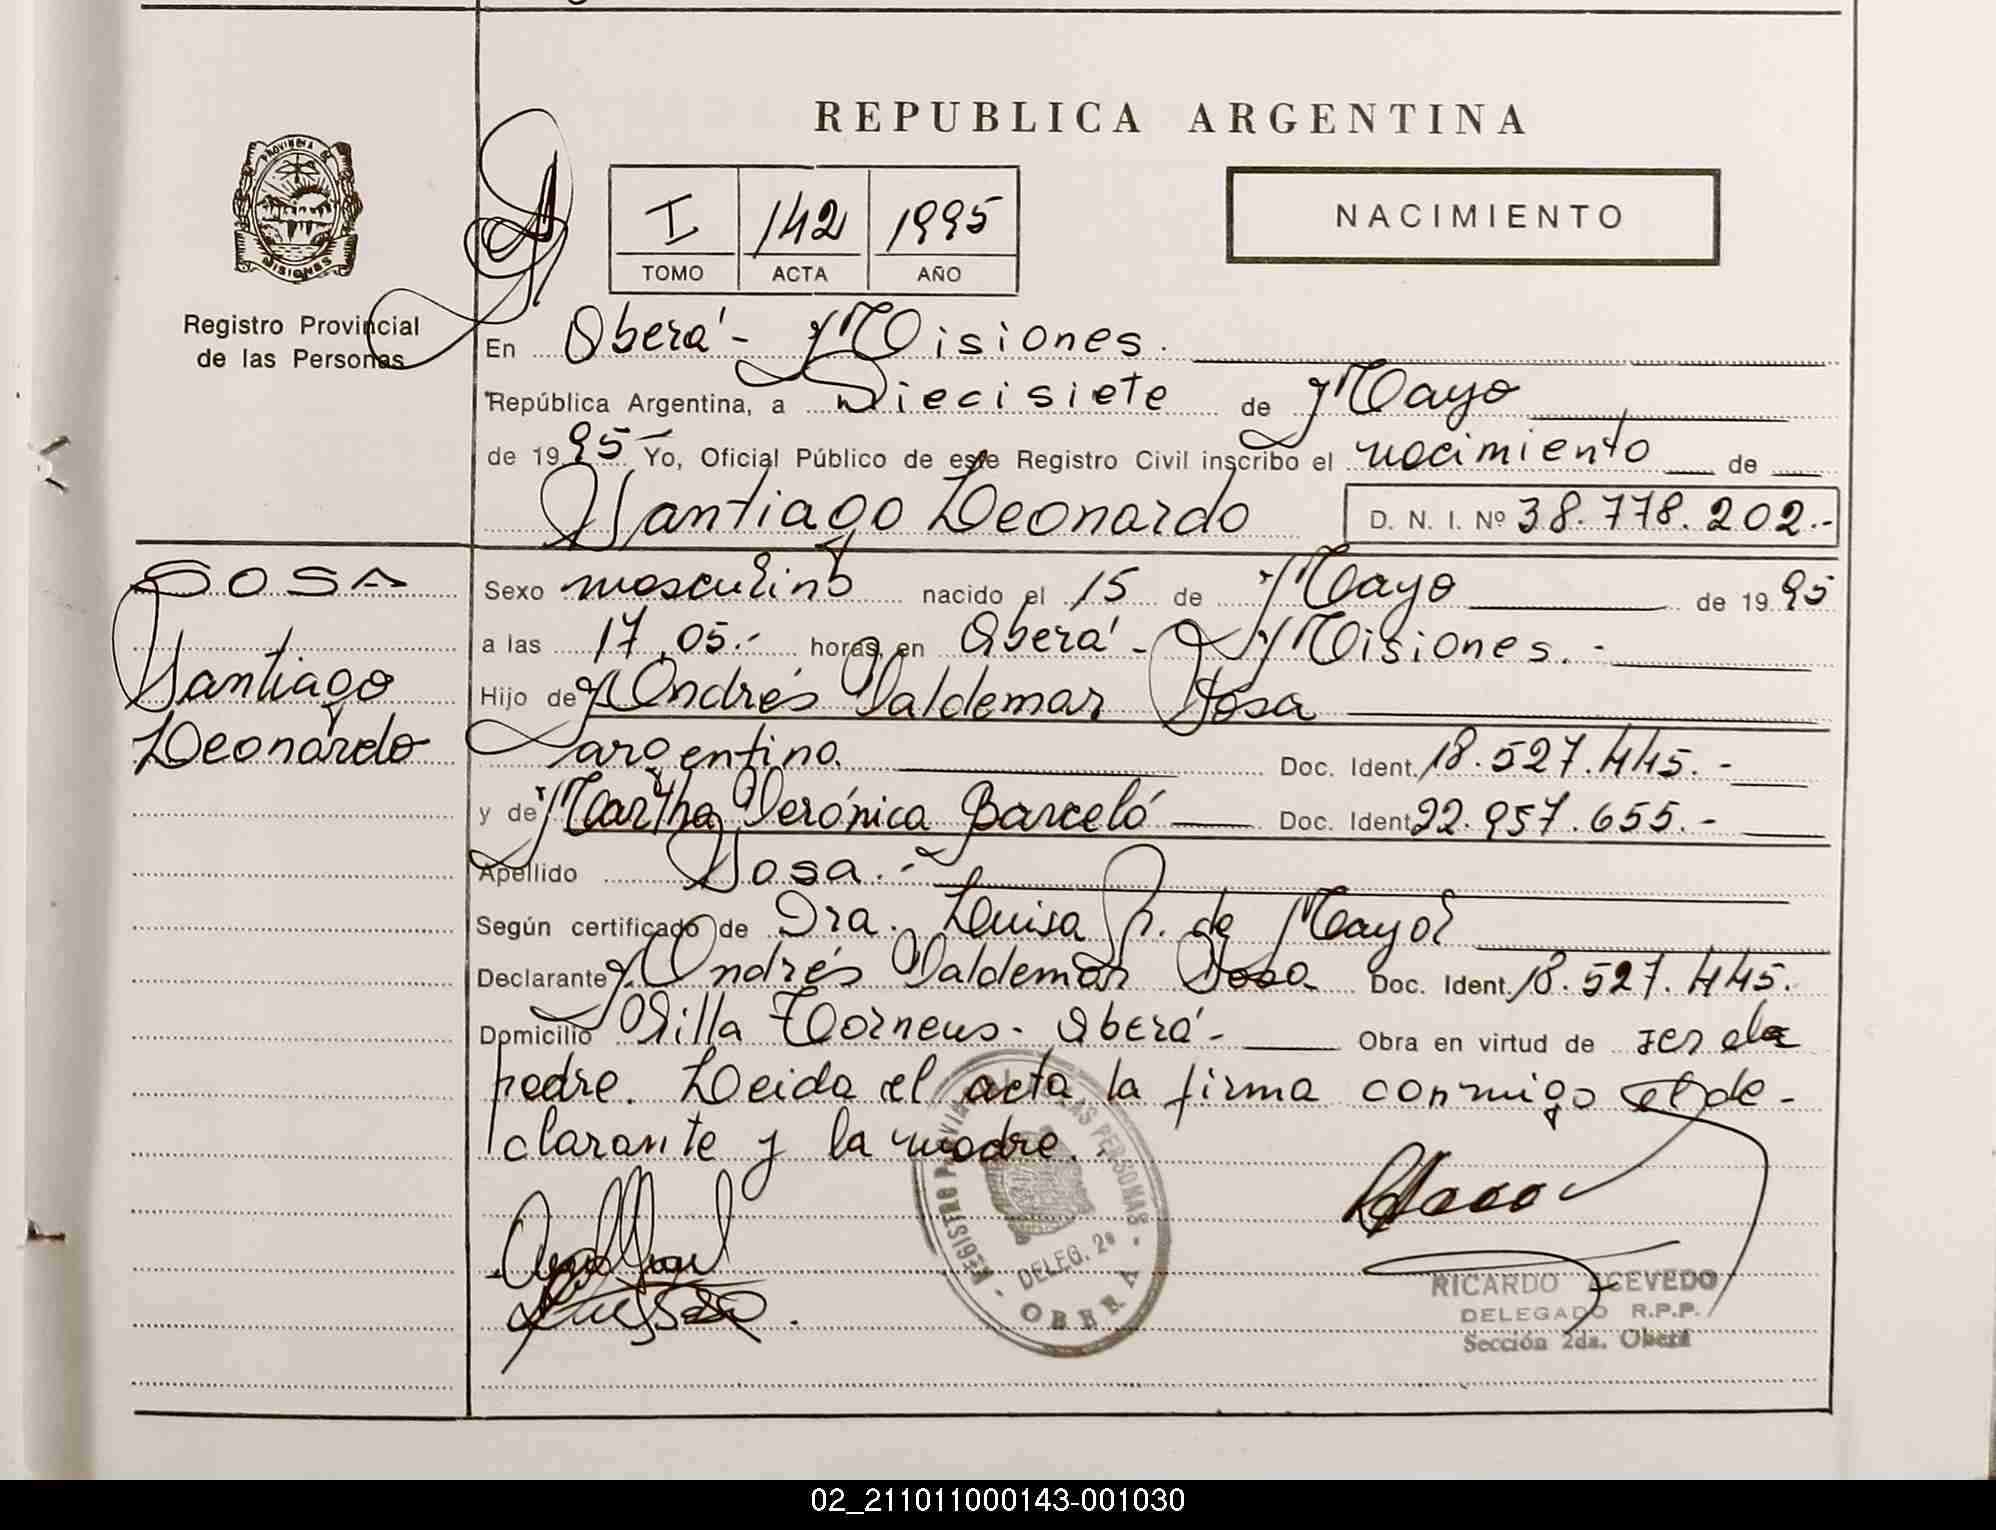 REPUBLICA ARGENTINA
PROVINCIA DE
MISIONES
Registro Provincial
de las Personas
I 142 1995
TOMO ACTA AÑO
NACIMIENTO
En Oberá - Misiones.
República Argentina, a Diecisiete de Mayo
de 1995 Yo, Oficial Público de este Registro Civil inscribo el nacimiento de
Santiago Leonardo D. N. I. Nº 38.778.202.-
SOSA
Santiago
Leonardo
Sexo masculino nacido el 15 de Mayo de 1995
a las 17,05.- horas en Oberá - Misiones.-
Hijo de Andrés Valdemar Sosa
argentino. Doc. Ident. 18.527.445.-
y de Martha Verónica Barceló Doc. Ident. 22.957.655.-
Apellido Sosa.-
Según certificado de Dra. Luisa R. de Mayol
Declarante Andrés Valdemar Sosa Doc. Ident. 18.527.445.
Domicilio Villa Oberá- Obra en virtud de ser el
padre. Leida el acta, la firma conmigo el de-
clarante y la madre.
REGISTRO PROVINCIAL DE LAS PERSONAS
DELEG. 2ª
OBERA
RICARDO ACEVEDO
DELEGADO R.P.P.
Sección 2da. Oberá
02_211011000143-001030